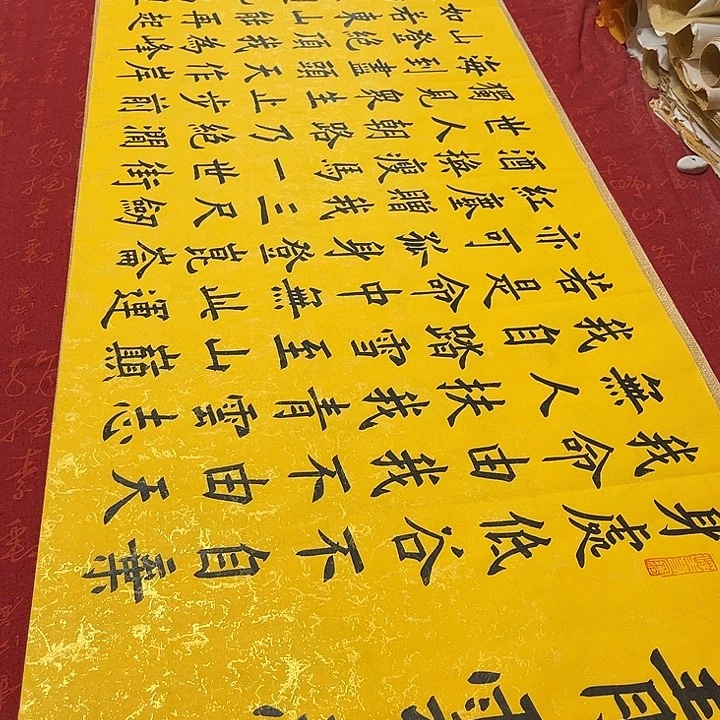 身處低谷不自棄
我命由我不由天
無人扶我青雲志
我自踏雪至山巔
若是命中無此運
亦可孤身登崑崙
紅塵贈我三尺劍
酒換瘦馬一世街
世人朝路乃絕澗
獨見眾生止步前
海到盡頭天作岸
山登絕頂我為峰
如若東山能再起